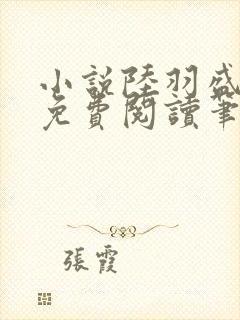 小說陸羽盛
免費閱讀筆
張霞